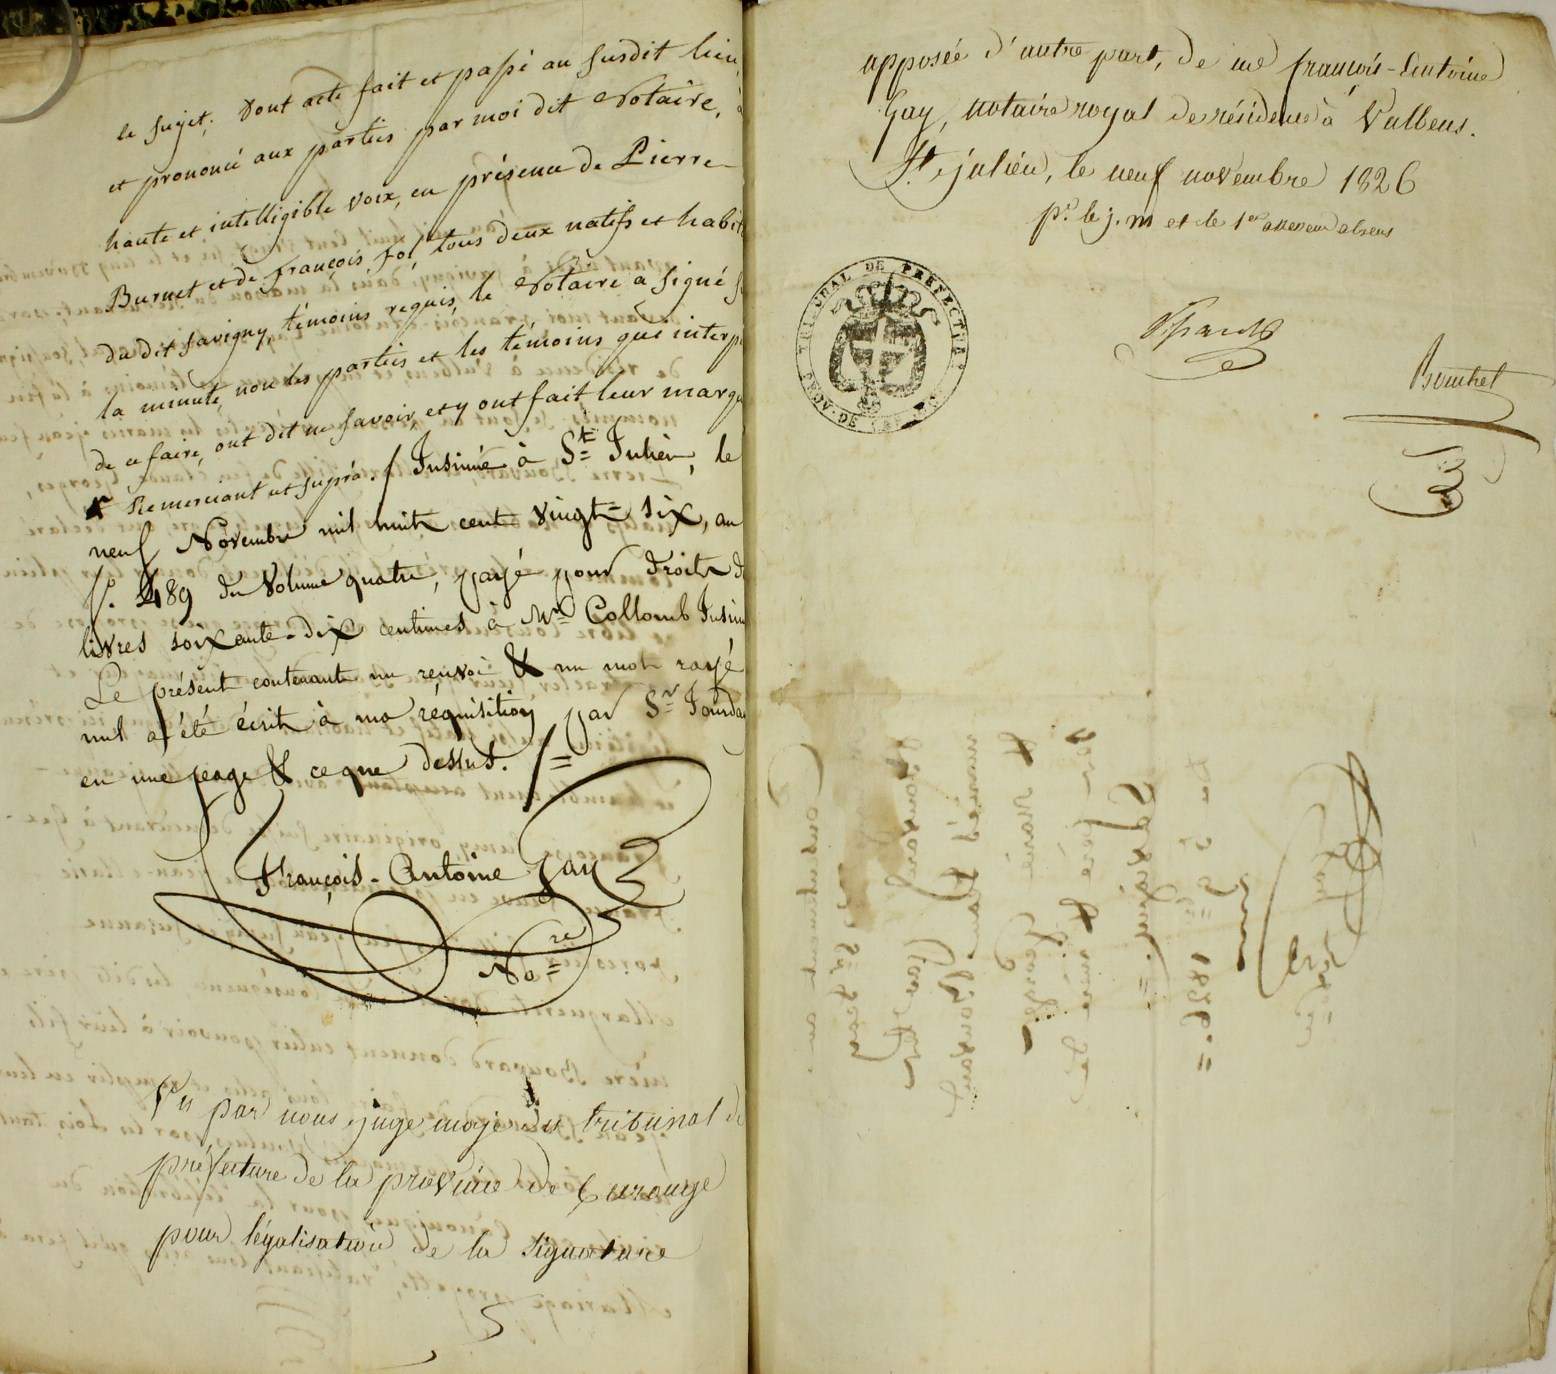 le sujet; dont acte fait et passé au susdit lieu,
et prononcé aux parties par moi dit Notaire, à
haute et intelligible voix, en présence de Pierre
Burnet et de françois foi, tous deux natifs et habit
du dit Savigny, témoins requis, le Notaire a signé s
la minute, non les parties et les témoins qui interp
de ce faire, ont dit ne savoir, et y ont fait leur marqu
Remerciant ut suprà. / Insinué à St Julien, le
neuf Novembre mil huit cent vingt-six, au
f.° 489 du Volume quatre, payé pour Droits d
livres soixante-dix centimes à Mr Collomb Insinu
Le présent contenant un renvoi & un mot rayé
nul a été écrit à ma réquisition par Sr Jourda
en une page & ce que dessus. /=
François-Antoine Gay
No=re
Vu par nous juge maje du tribunal de
préfecture de la province de Carouge
pour légalisation de la signature
apposée d'autre part, de me françois-Antoine
Gay, notaire royal de résidence à Valbens.
St julien, le neuf novembre 1826
pr. le j. m et le 1er assesseur absens
TRIBUNAL DE PREFECTURE
Bouchet